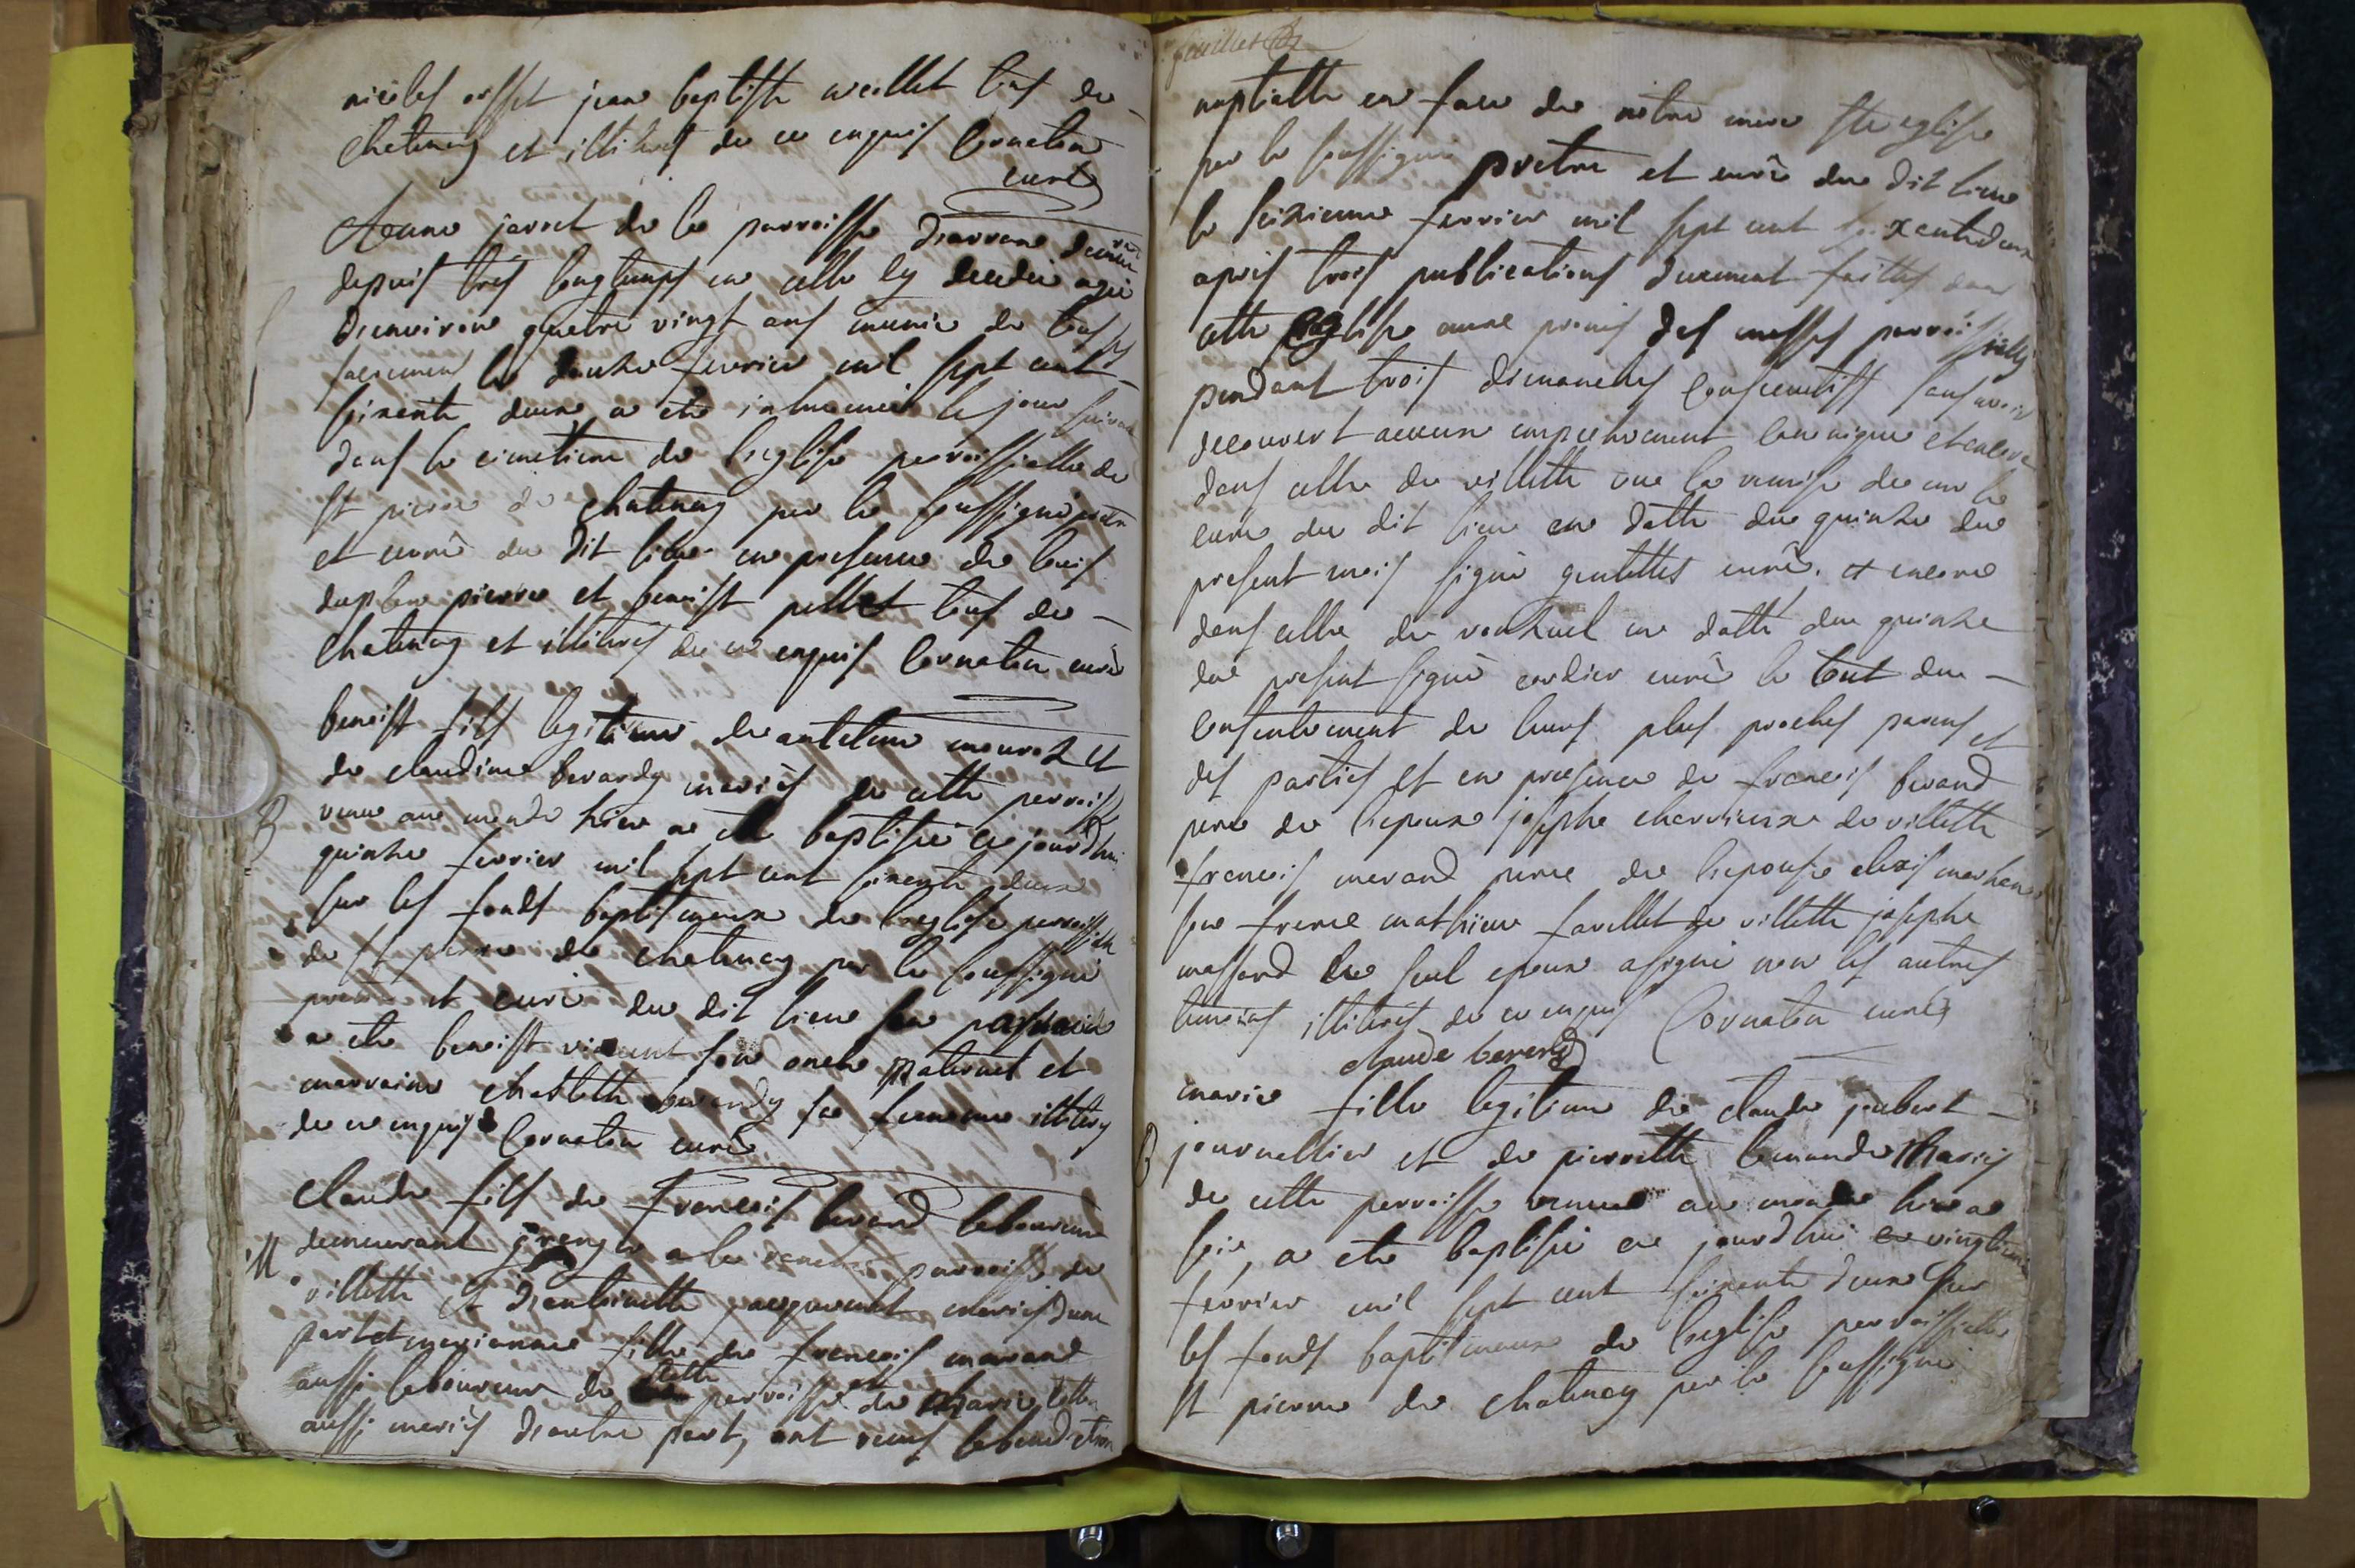 nicolas et jean baptiste tous de
Chatenay et illiteres de ce enquis Cornaton
curé
janet de la parroisse
depuis tres longtemps en celle cy decedée agée
d'environ quatre vingt ans munie de tous
sacremens le douze fevrier mil sept cent
soixente deux a eté inhumée le jour suivant
dans le cimetiere de l'eglise parroissialle de
St pierre de chatenay par le soussigné pretre
et curé du dit lieu en presence de louis
pierre et benoist pellet tous de
Chatenay et illiteres de ce enquis Cornaton curé
benoist fils legitime de antelme et
de claudine berardy mariés de cette parroisse
B venu au monde hier a eté baptisé ce jourd'hui
quinze fevrier mil sept cent soixente deux
sur les fonds baptismeaux de l'eglise parroissialle
de St pierre de chatenay par le soussigné
pretre et curé du dit lieu son parrain
a eté benoist vincent son oncle paternel et
marraine berardy sa femme illiteres
de ce enquis Cornaton curé
Claude fils de francois berard laboureur
M demeurant parroisse de
villette et d'antoinette mariés d'une
part et marianne fille de francois marand
aussi laboureur de cette parroisse et de marie
aussi mariés d'autre part, ont reçus la benediction
feuillet
nuptialle en face de notre mere Ste eglise
par le soussigné pretre et curé du dit lieu
le seizieme fevrier mil sept cent soixentedeux
apres trois publications duement faittes dans
cette eglise aux prones des messes parroissialles
pendant trois dimanches consecutifs sans avoir
decouvert aucun empechement canonique et encore
dans celle de villette vue la remise de mr le
curé du dit lieu en datte du quinze du
present mois signé curé. et encore
dans celle de en datte du quinze
du present signé cordier curé le tout du
consentement de leurs plus proches parens et
des parties et en presence de francois berard
pere de l'epoux josephe de villette
francois marand pere de l'epouse
son frere mathieu de villette josephe
le seul epoux a signé non les autres
temoins illiteres de ce enquis Cornaton curé
claude bererd
marie fille legitime de claude joubert
B journellier et de pierrette mariés
de cette parroisse venue au monde hier au
soir, a eté baptisée ce jourd'hui vingtieme
fevrier mil sept cent soixente deux sur
les fonds baptismeaux de l'eglise parroissialle
St pierre de chatenay par le soussigné